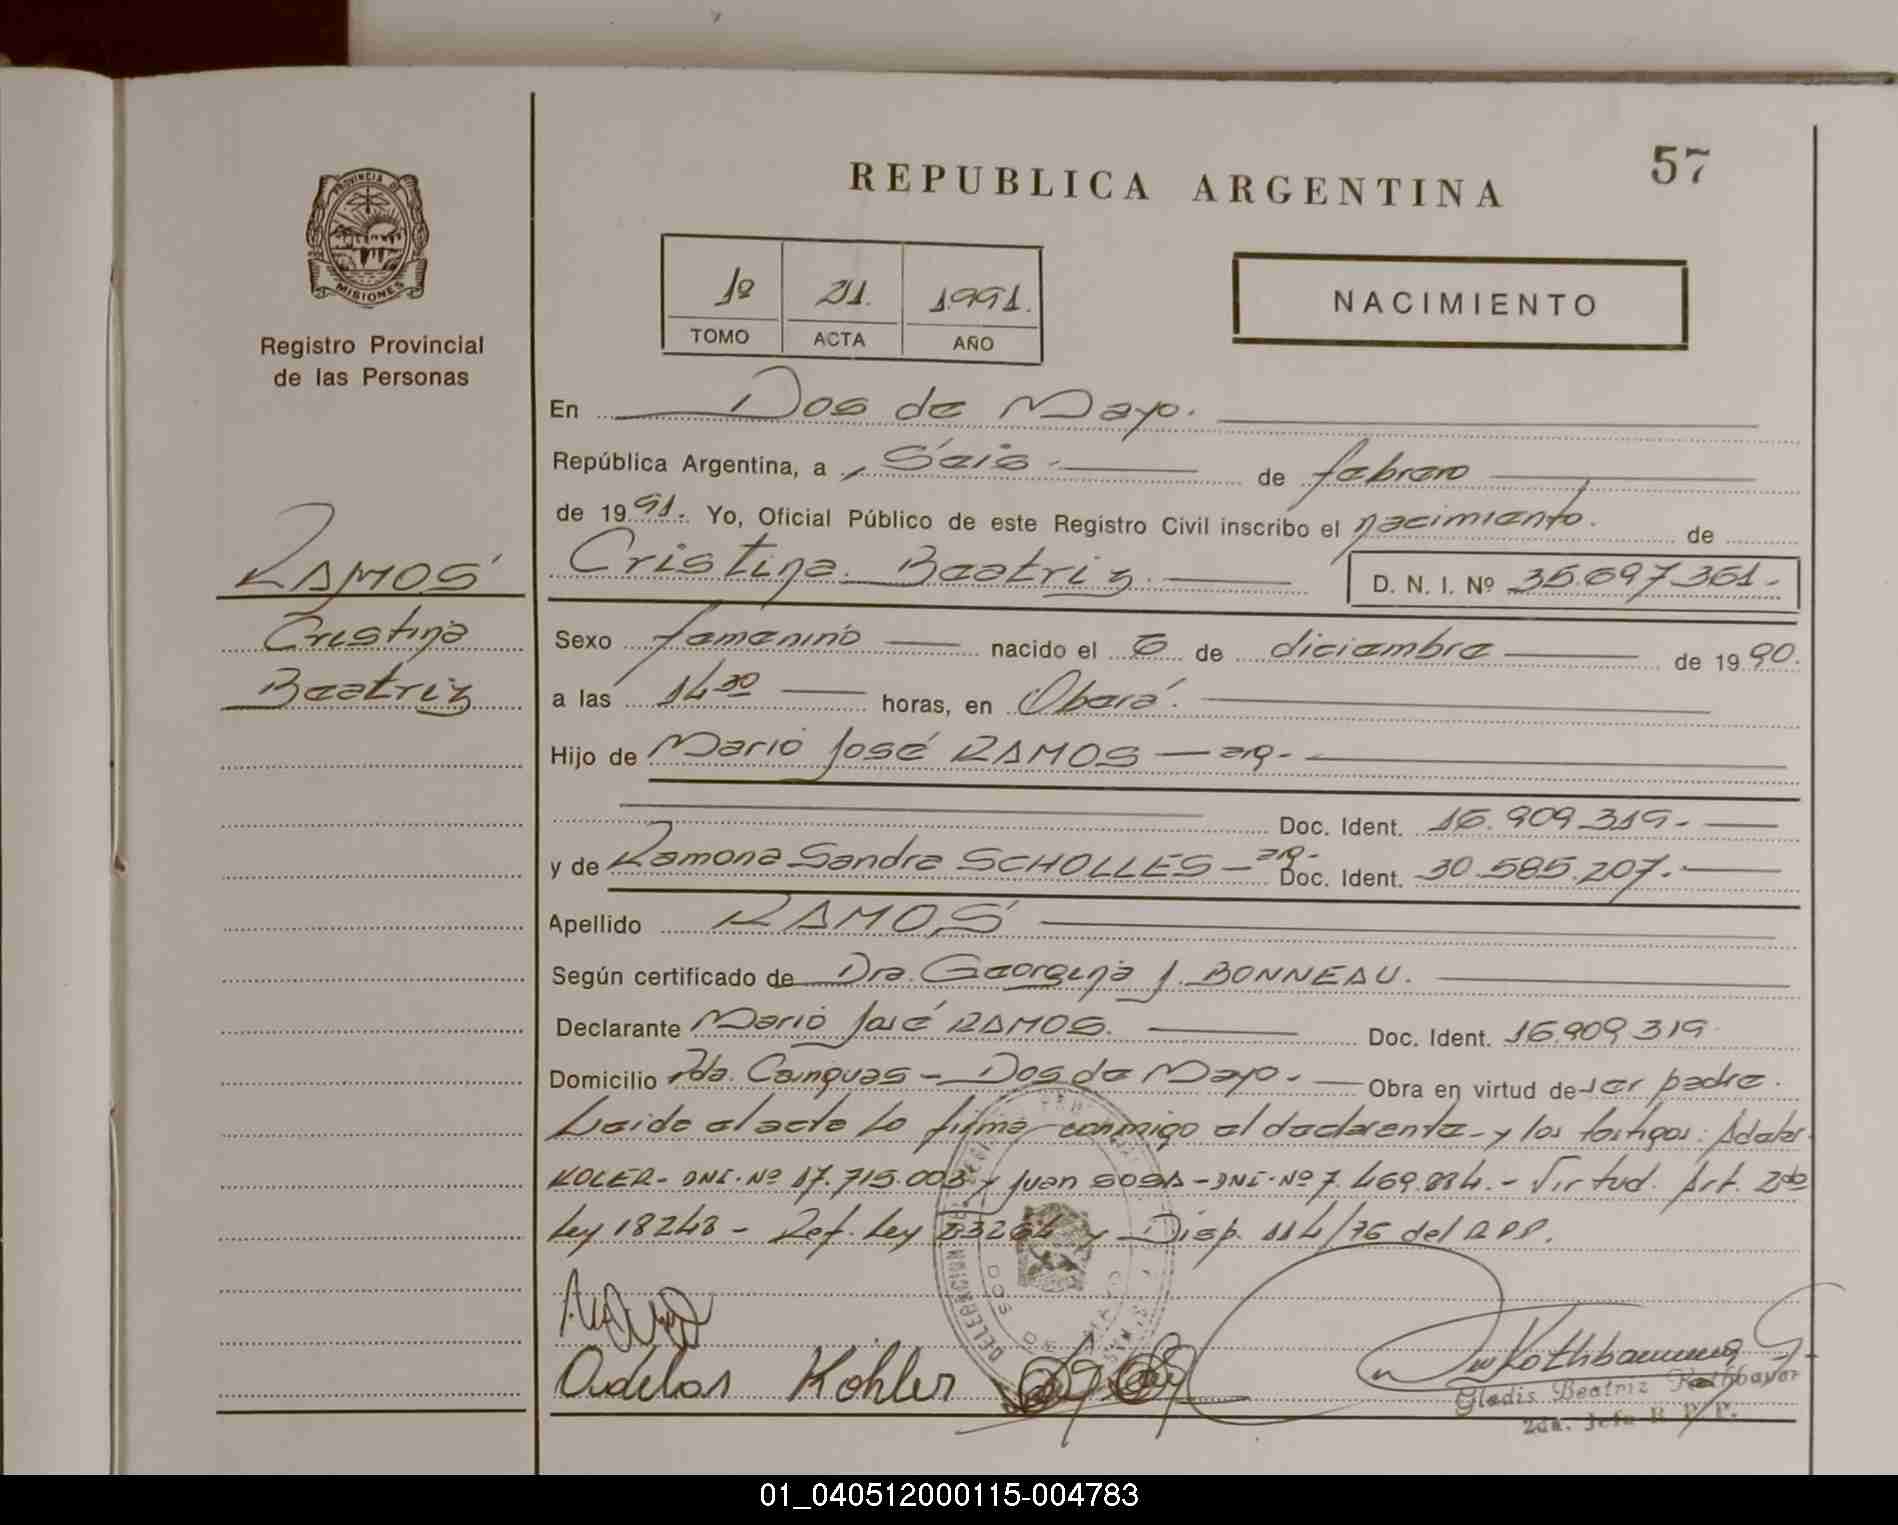 57
REPUBLICA ARGENTINA
PROVINCIA DE
MISIONES
Registro Provincial
de las Personas
1º 21. 1.991.
TOMO ACTA AÑO
NACIMIENTO
En Dos de Mayo.
República Argentina, a Seis de febrero
de 1991. Yo, Oficial Público de este Registro Civil inscribo el nacimiento. de
RAMOS
Cristina Beatriz D. N. I. Nº 35.697.361.-
Cristina
Beatriz
Sexo femenino nacido el 6 de diciembre de 1990.
a las 14 30 horas, en Oberá.
Hijo de Mario José RAMOS — arg.-
Doc. Ident. 16.909.319.-
y de Ramona Sandra SCHOLLES — arg.- Doc. Ident. 30.585.207.-
Apellido RAMOS
Según certificado de Dra. Georgina J. BONNEAU.
Declarante Mario José RAMOS. Doc. Ident. 16.909.319
Domicilio Pda. Cainguas - Dos de Mayo.- Obra en virtud de ser padre.
Leido el acta lo firma conmigo el declarante y los testigos:
KOLER - DNI. Nº 17.715.003 y Juan SOSA - DNI. Nº 7.469.884.- Virtud. Art. 2do
Ley 18248 - Ref. Ley 23264 y Disp. 114/76 del RPP.
DELEGACION
DOS DE MAYO
Kohler
Gladis Beatriz
2da. Jefa R. P. P.
01_040512000115-004783